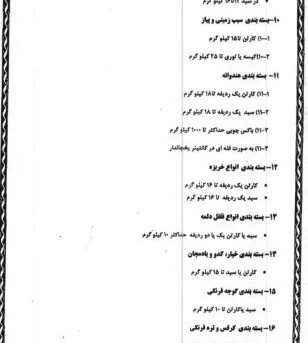 • در سبد تا ۱۶ کیلو گرم
۱۰- بسته بندی سیب زمینی و پیاز
۱-۱۰) کارتن تا ۱۵ کیلو گرم
۲-۱۰) کیسه یا توری تا ۲۵ کیلو گرم
۱۱- بسته بندی هندوانه
۱-۱۱) کارتن یک ردیفه تا ۱۸ کیلو گرم
۲-۱۱) سبد یک ردیفه تا ۱۸ کیلو گرم
۳-۱۱) باکس چوبی حداکثر تا ۱۰۰۰ کیلو گرم
۴-۱۱) به صورت فله ای در کانتینر یخچالدار
۱۲- بسته بندی انواع خربزه
• کارتن یک ردیفه تا ۱۶ کیلو گرم
• سبد یک ردیفه تا ۱۶ کیلو گرم
۱۳- بسته بندی انواع فلفل دلمه
• سبد یا کارتن یک یا دو ردیفه حداکثر ۱۰ کیلو گرم
۱۴- بسته بندی خیار، کدو و بادمجان
• کارتن یا سبد تا ۱۵ کیلو گرم
۱۵- بسته بندی گوجه فرنگی
• سبد یا کارتن تا ۱۰ کیلو گرم
۱۶- بسته بندی کرفس و تره فرنگی